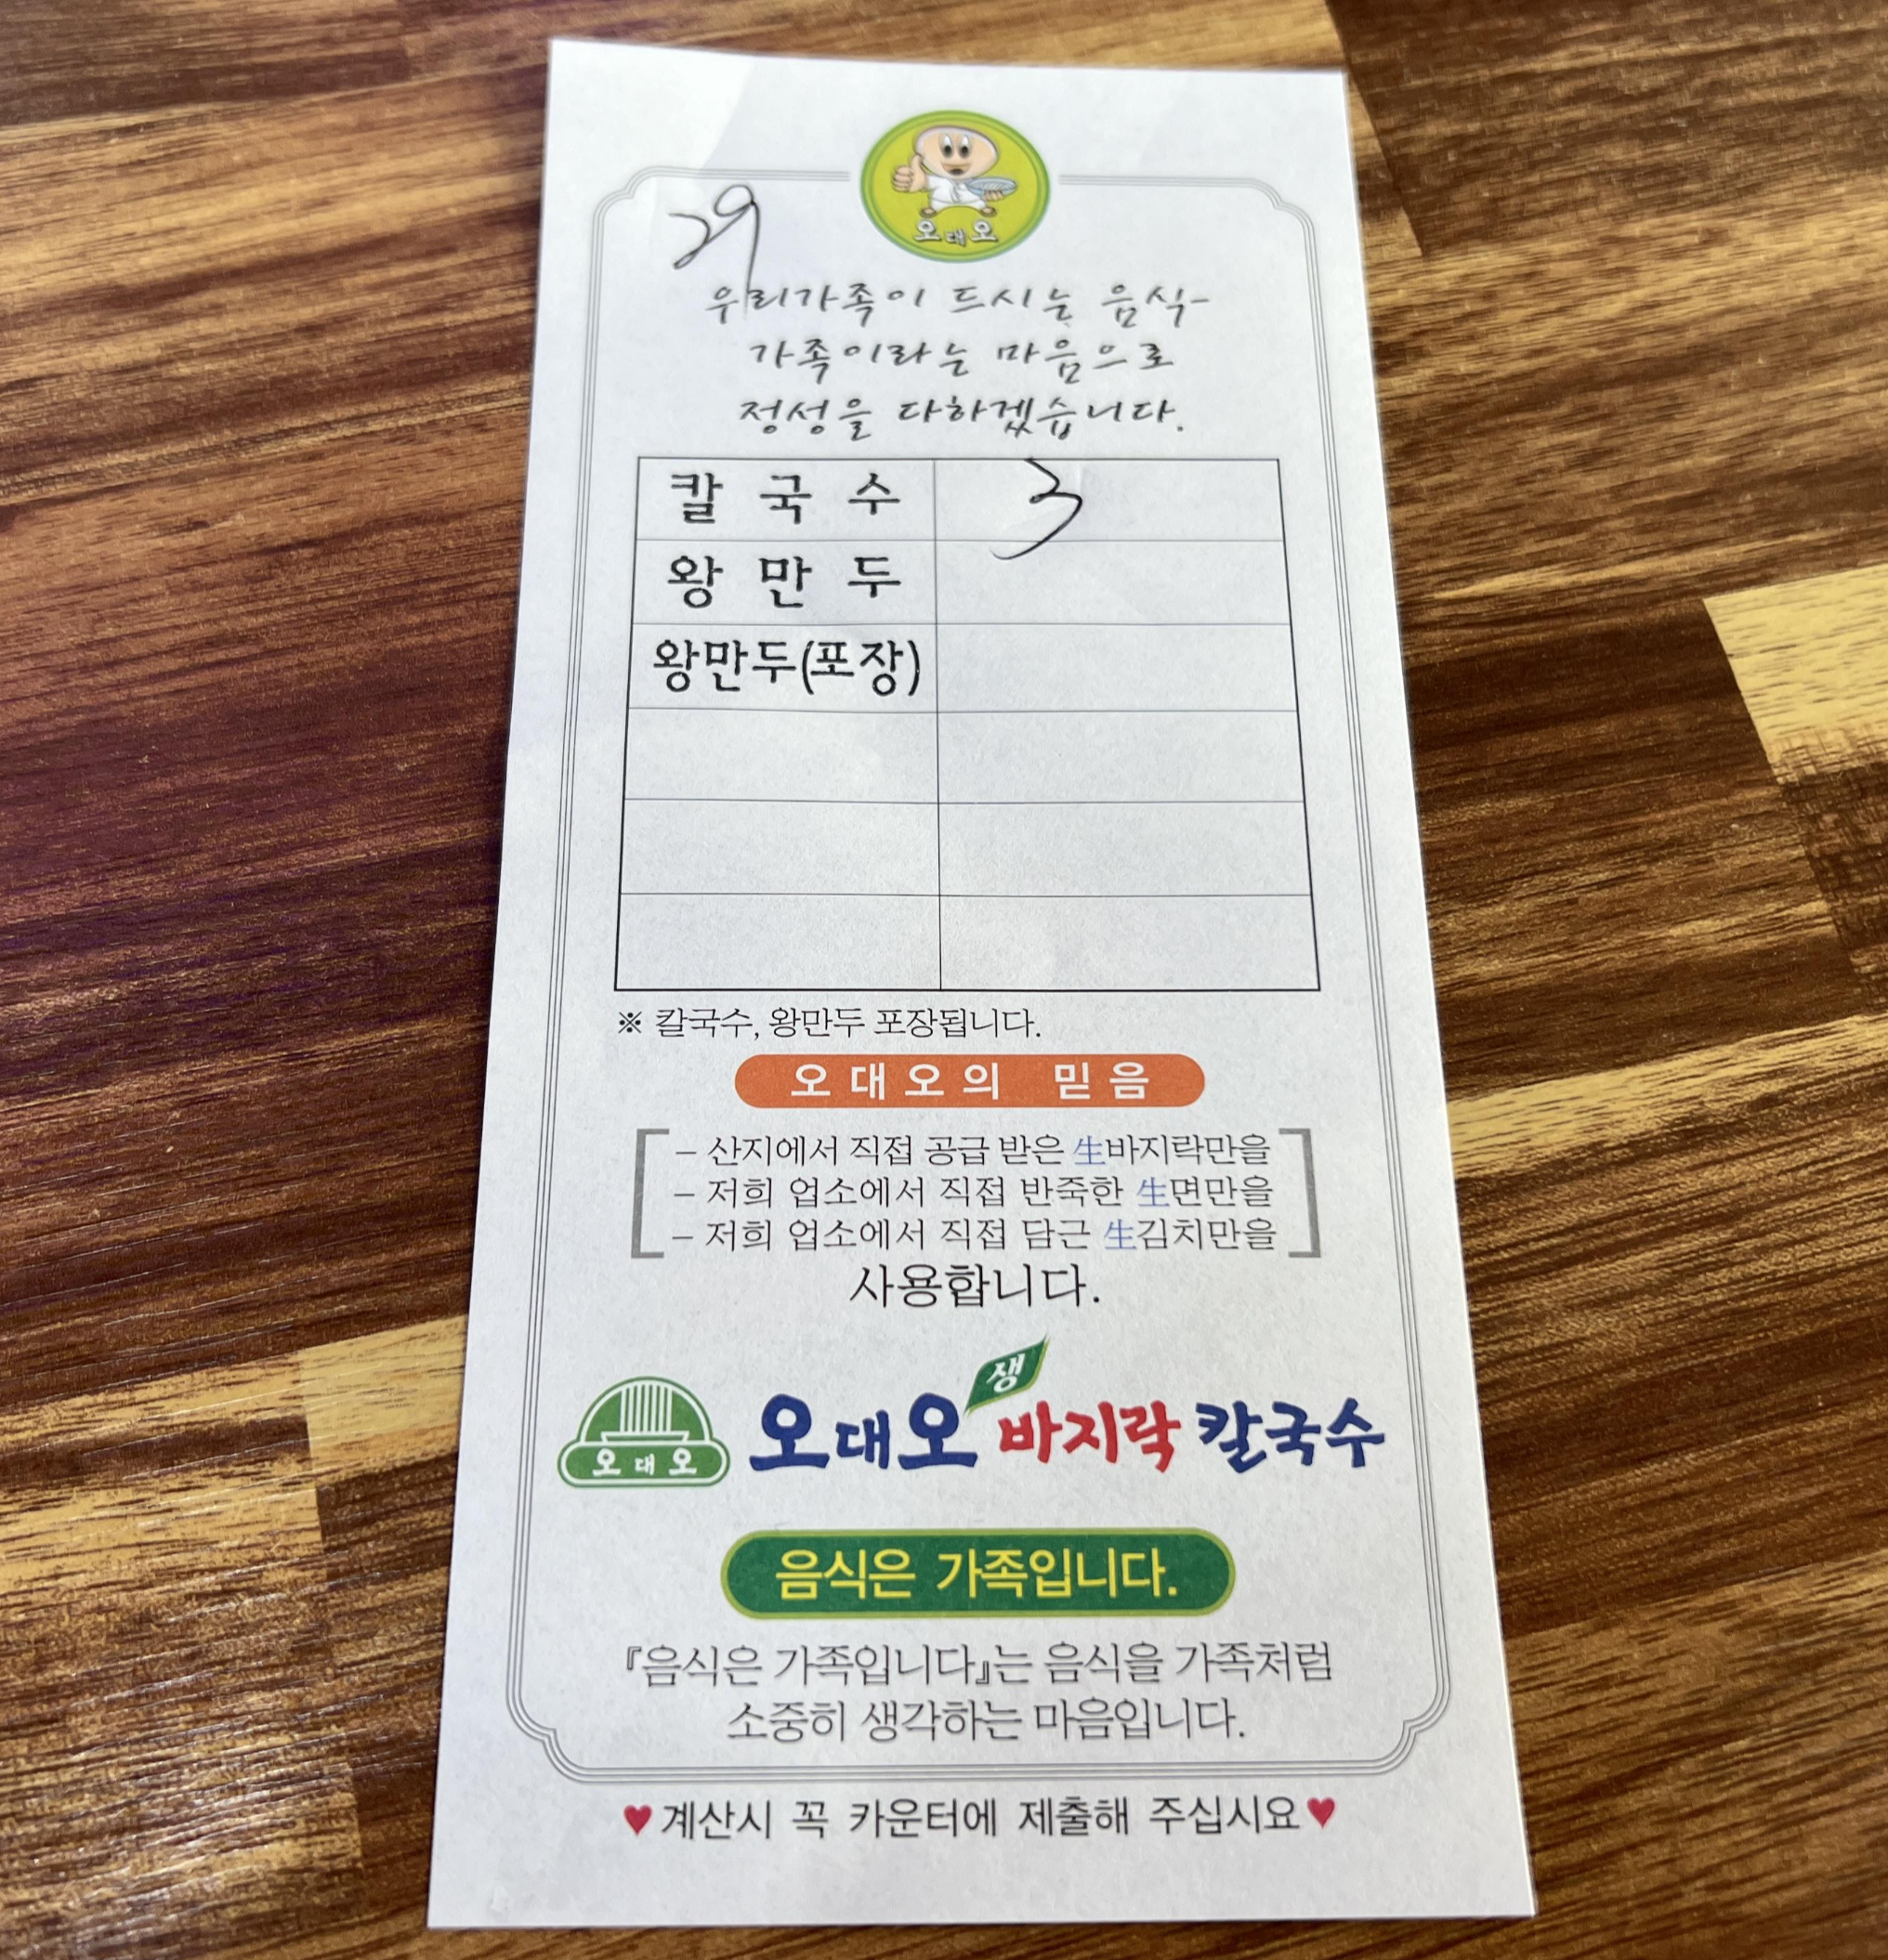 오대오
29
우리가족이 드시는 음식
가족이라는 마음으로
정성을 다하겠습니다.
칼국수 3
왕만두
왕만두(포장)
※ 칼국수, 왕만두 포장됩니다.
오대오의 믿음
- 산지에서 직접 공급 받은 生바지락만을
- 저희 업소에서 직접 반죽한 生면만을
- 저희 업소에서 직접 담근 生김치만을
사용합니다.
오대오
오대오 생 바지락 칼국수
음식은 가족입니다.
『음식은 가족입니다』는 음식을 가족처럼
소중히 생각하는 마음입니다.
♥계산시 꼭 카운터에 제출해 주십시요♥